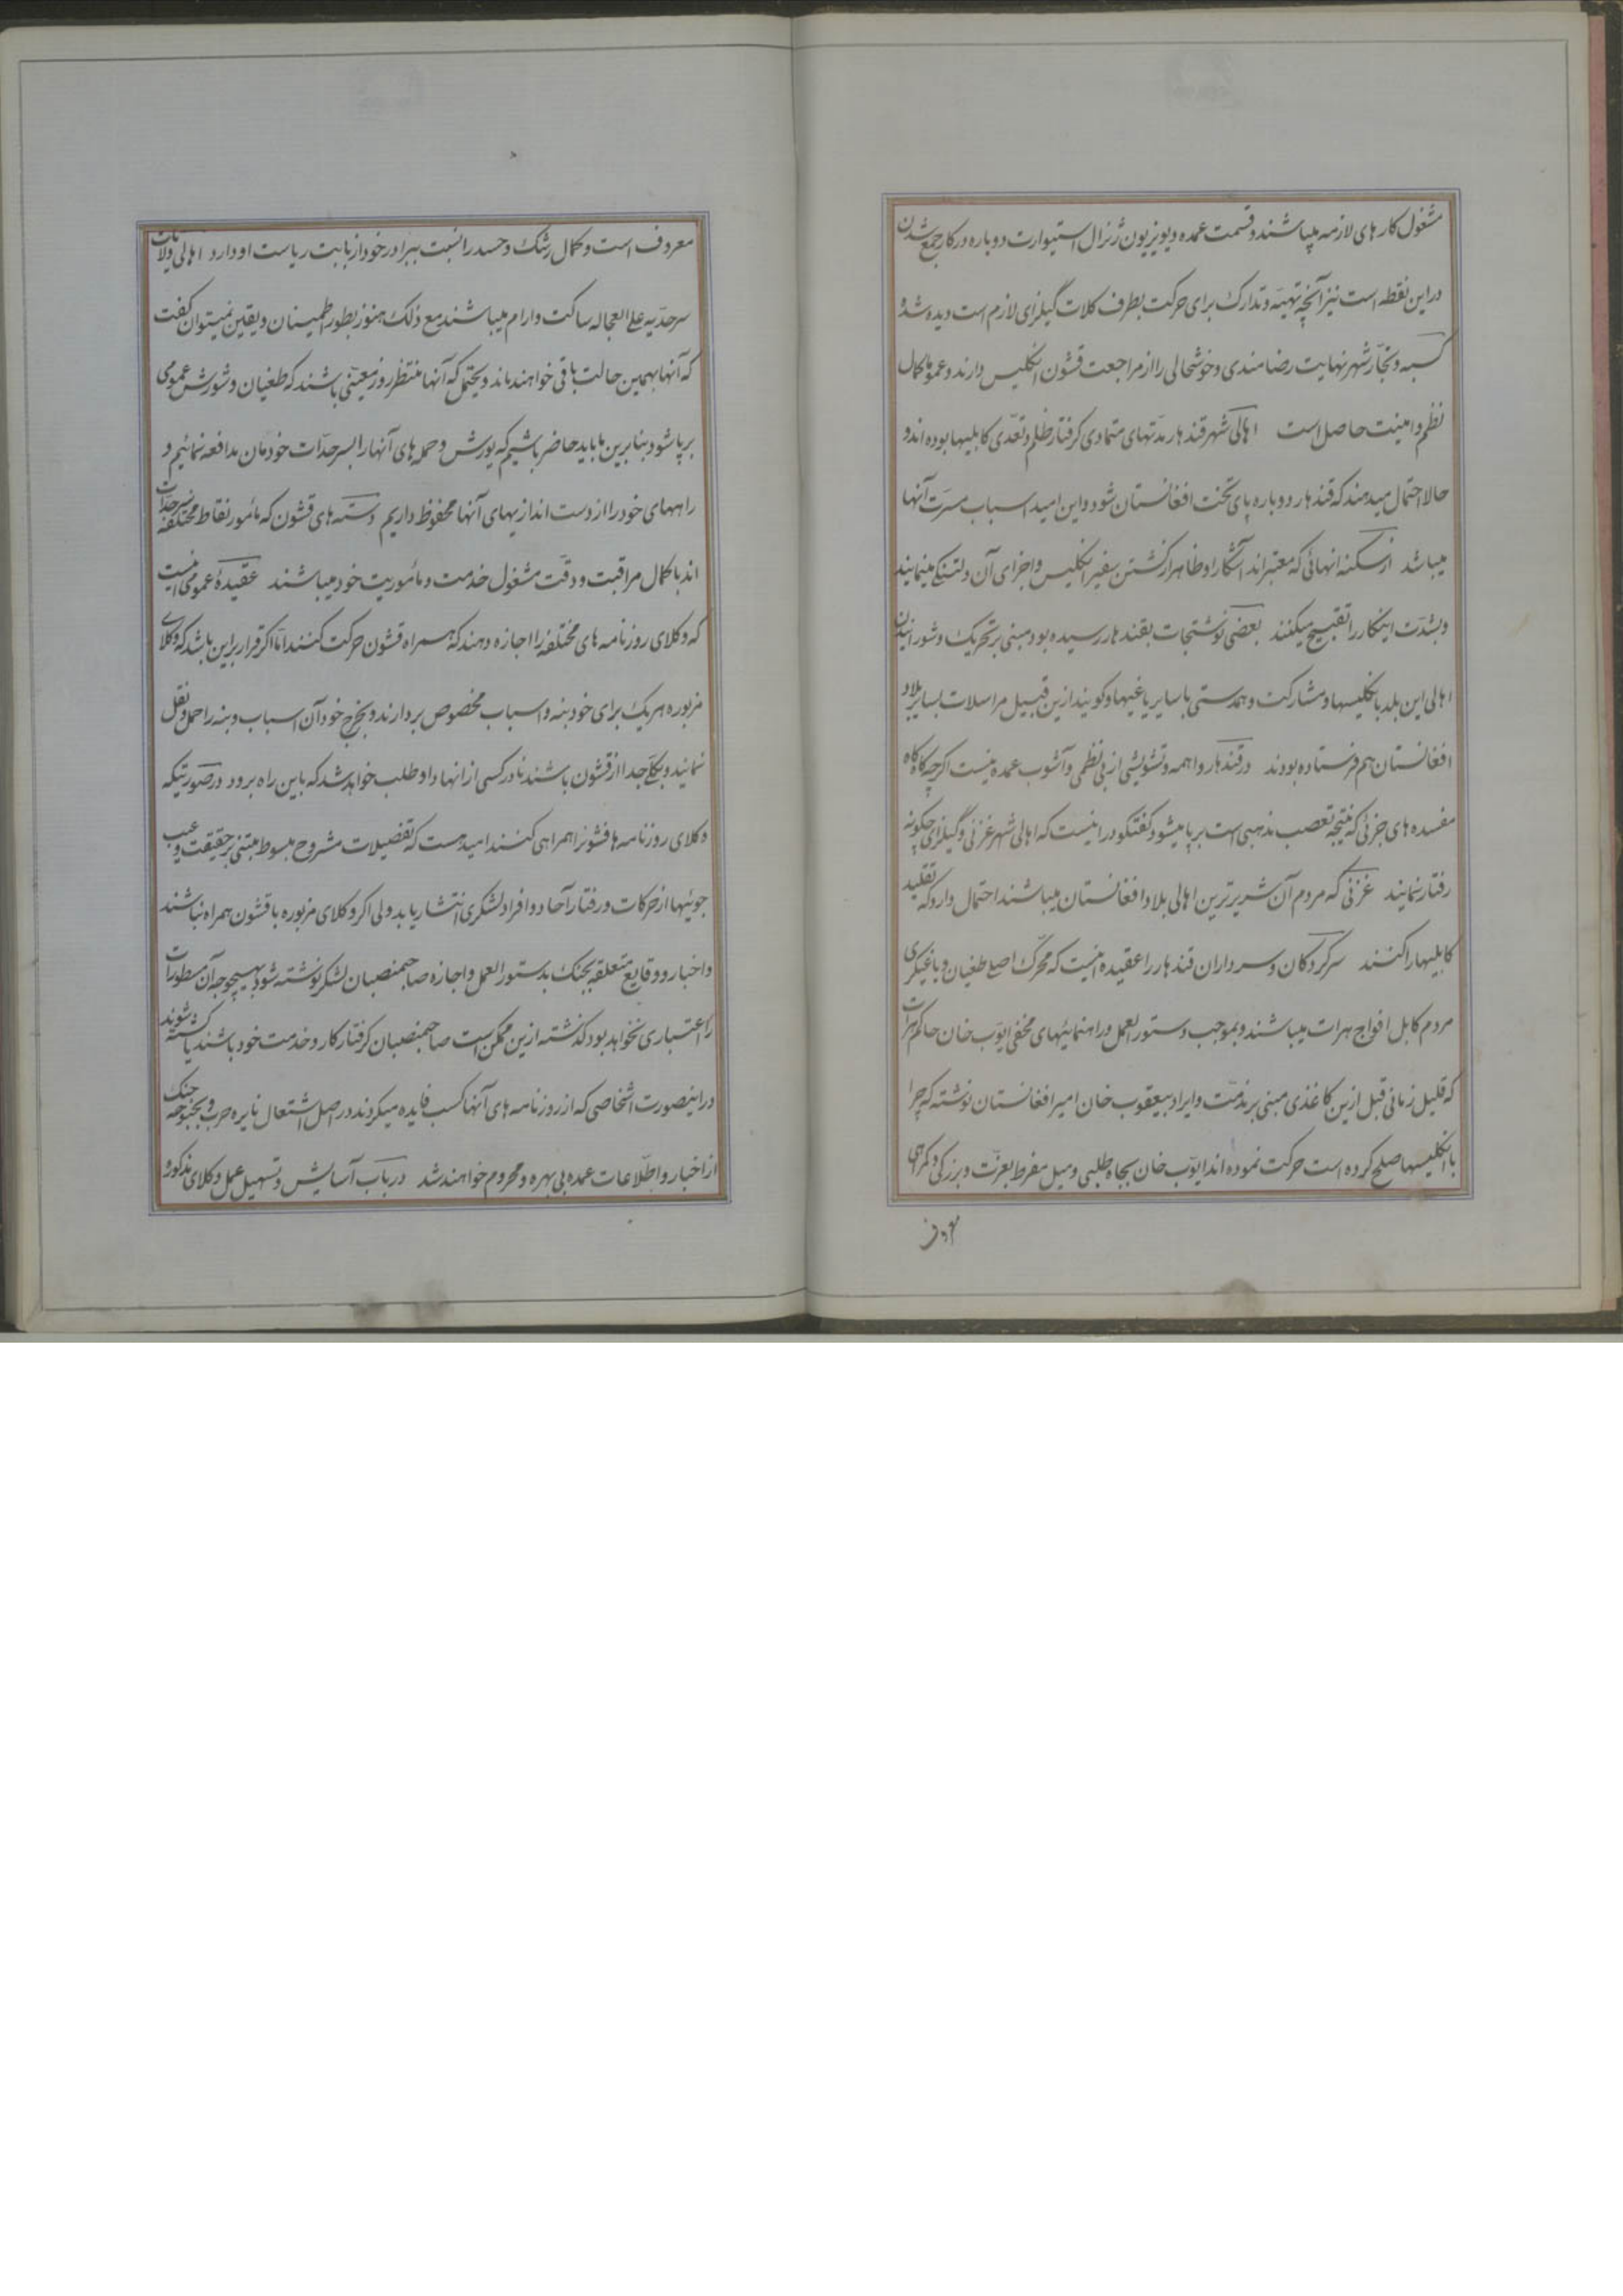 مشغول کارهای لازمه میباشند و قسمت عمده دیویزیون ژنرال استیوارت دوباره در کار جمع شدن
در این نقطه است نیز آنچه تهیه و تدارک برای حرکت بطرف کلات گیلزای لازم است دیده شد و
کسبه و تجار شهر نهایت رضامندی و خوشحالی را از مراجعت قشون انگلیس دارند و عموما کمال
نظم و امنیت حاصل است اهالی شهر قندهار مدتهای متمادی گرفتار ظلم و تعدی کابلیها بوده اند و
حالا احتمال میدهند که قندهار دوباره پای تخت افغانستان شود و این امید اسباب مسرت آنها
میباشد از سکنه انهائی که معتبراند آشکارا و ظاهرا از کشتن سفیر انگلیس و اجزای آن دلتنگی مینمایند
و بشدت اینکار را تقبیح میکنند بعضی نوشتجات بقندهار رسیده بود مبنی بر تحریک و شورانیدن
اهالی این بلد با نگلیسها و مشارکت و همدستی با سایر یاغیها و گویند ازین قبیل مراسلات بسایر بلاد
افغانستان هم فرستاده بودند در قندهار واهمه و تشویشی از بی نظمی و آشوب عمده نیست اگرچه گاه گاه
مفسده های جزئی که نتیجه تعصب مذهبی است برپا میشود گفتگو در اینست که اهالی شهر غزنی و گیلزای چگونه
رفتار نمایند غزنی که مردم آن شریرترین اهالی بلاد افغانستان میباشند احتمال دارد که تقلید
کابلیها را کنند سرکردگان و سرداران قندهار را عقیده اینست که محرک اصلی طغیان و یاغیگری
مردم کابل افواج هرات میباشند و بموجب دستورالعمل و راهنمائیهای مخفی ایوب خان حاکم هرات
که قلیل زمانی قبل ازین کاغذی مبنی بر مذمت و ایراد بیعقوب خان امیر افغانستان نوشته که چرا
با انگلیسها صلح کرده است حرکت نموده اند ایوب خان بجاه طلبی و میل مفرط بعزت و بزرگی و گمراهی
معروف
معروف است و کمال رشک و حسد را نسبت ببرادر خود از بابت ریاست او دارد اهالی ولایات
سرحدیه علی العجاله ساکت و ارام میباشند مع ذلک هنوز بطور اطمینان و یقین نمیتوان گفت
که آنها بهمین حالت باقی خواهند ماند و یحتمل که آنها منتظر روز معینی باشند که طغیان و شورش عمومی
برپا شود بنابرین ما باید حاضر باشیم که یورش و حمله های آنها را بسرحدات خودمان مدافعه نمائیم و
راههای خود را از دست اندازیهای آنها محفوظ داریم دسته های قشون که مأمور نقاط مختلفه سرحدات
اند با کمال مراقبت و دقت مشغول خدمت و مأموریت خود میباشند عقیده عمومی اینست
که وکلای روزنامه های مختلفه را اجازه دهند که همراه قشون حرکت کنند اما اگر قرار براین باشد که وکلای
مزبوره هریک برای خود بنه و اسباب مخصوص بردارند و بخرج خود آن اسباب و بنه را حمل و نقل
نمایند و بکلی جدا از قشون باشند نادر کسی از انها داوطلب خواهد شد که باین راه برود در صورتیکه
وکلای روزنامه ها قشونرا همراهی کنند امید هست که تفضیلات مشروح مبسوط مبتنی بر حقیقت و عیب
جوئیها از حرکات و رفتار آحاد و افراد لشکری انتشار یابد ولی اگر وکلای مزبوره با قشون همراه نباشند
و اخبار و وقایع متعلقه بجنگ بدستورالعمل و اجازه صاحبمنصبان لشکر نوشته شود بهیچوجه آن مسطورات
را اعتباری نخواهد بود گذشته ازین ممکن است صاحبمنصبان گرفتار کار و خدمت خود باشند یا کشته شوند
در اینصورت اشخاصی که از روزنامه های آنها کسب فایده میکردند در اصل اشتعال نایره حرب و بحبوحه جنگ
از اخبار و اطلاعات عمده بی بهره و محروم خواهند شد در باب آسایش و تسهیل عمل وکلای مذکوره